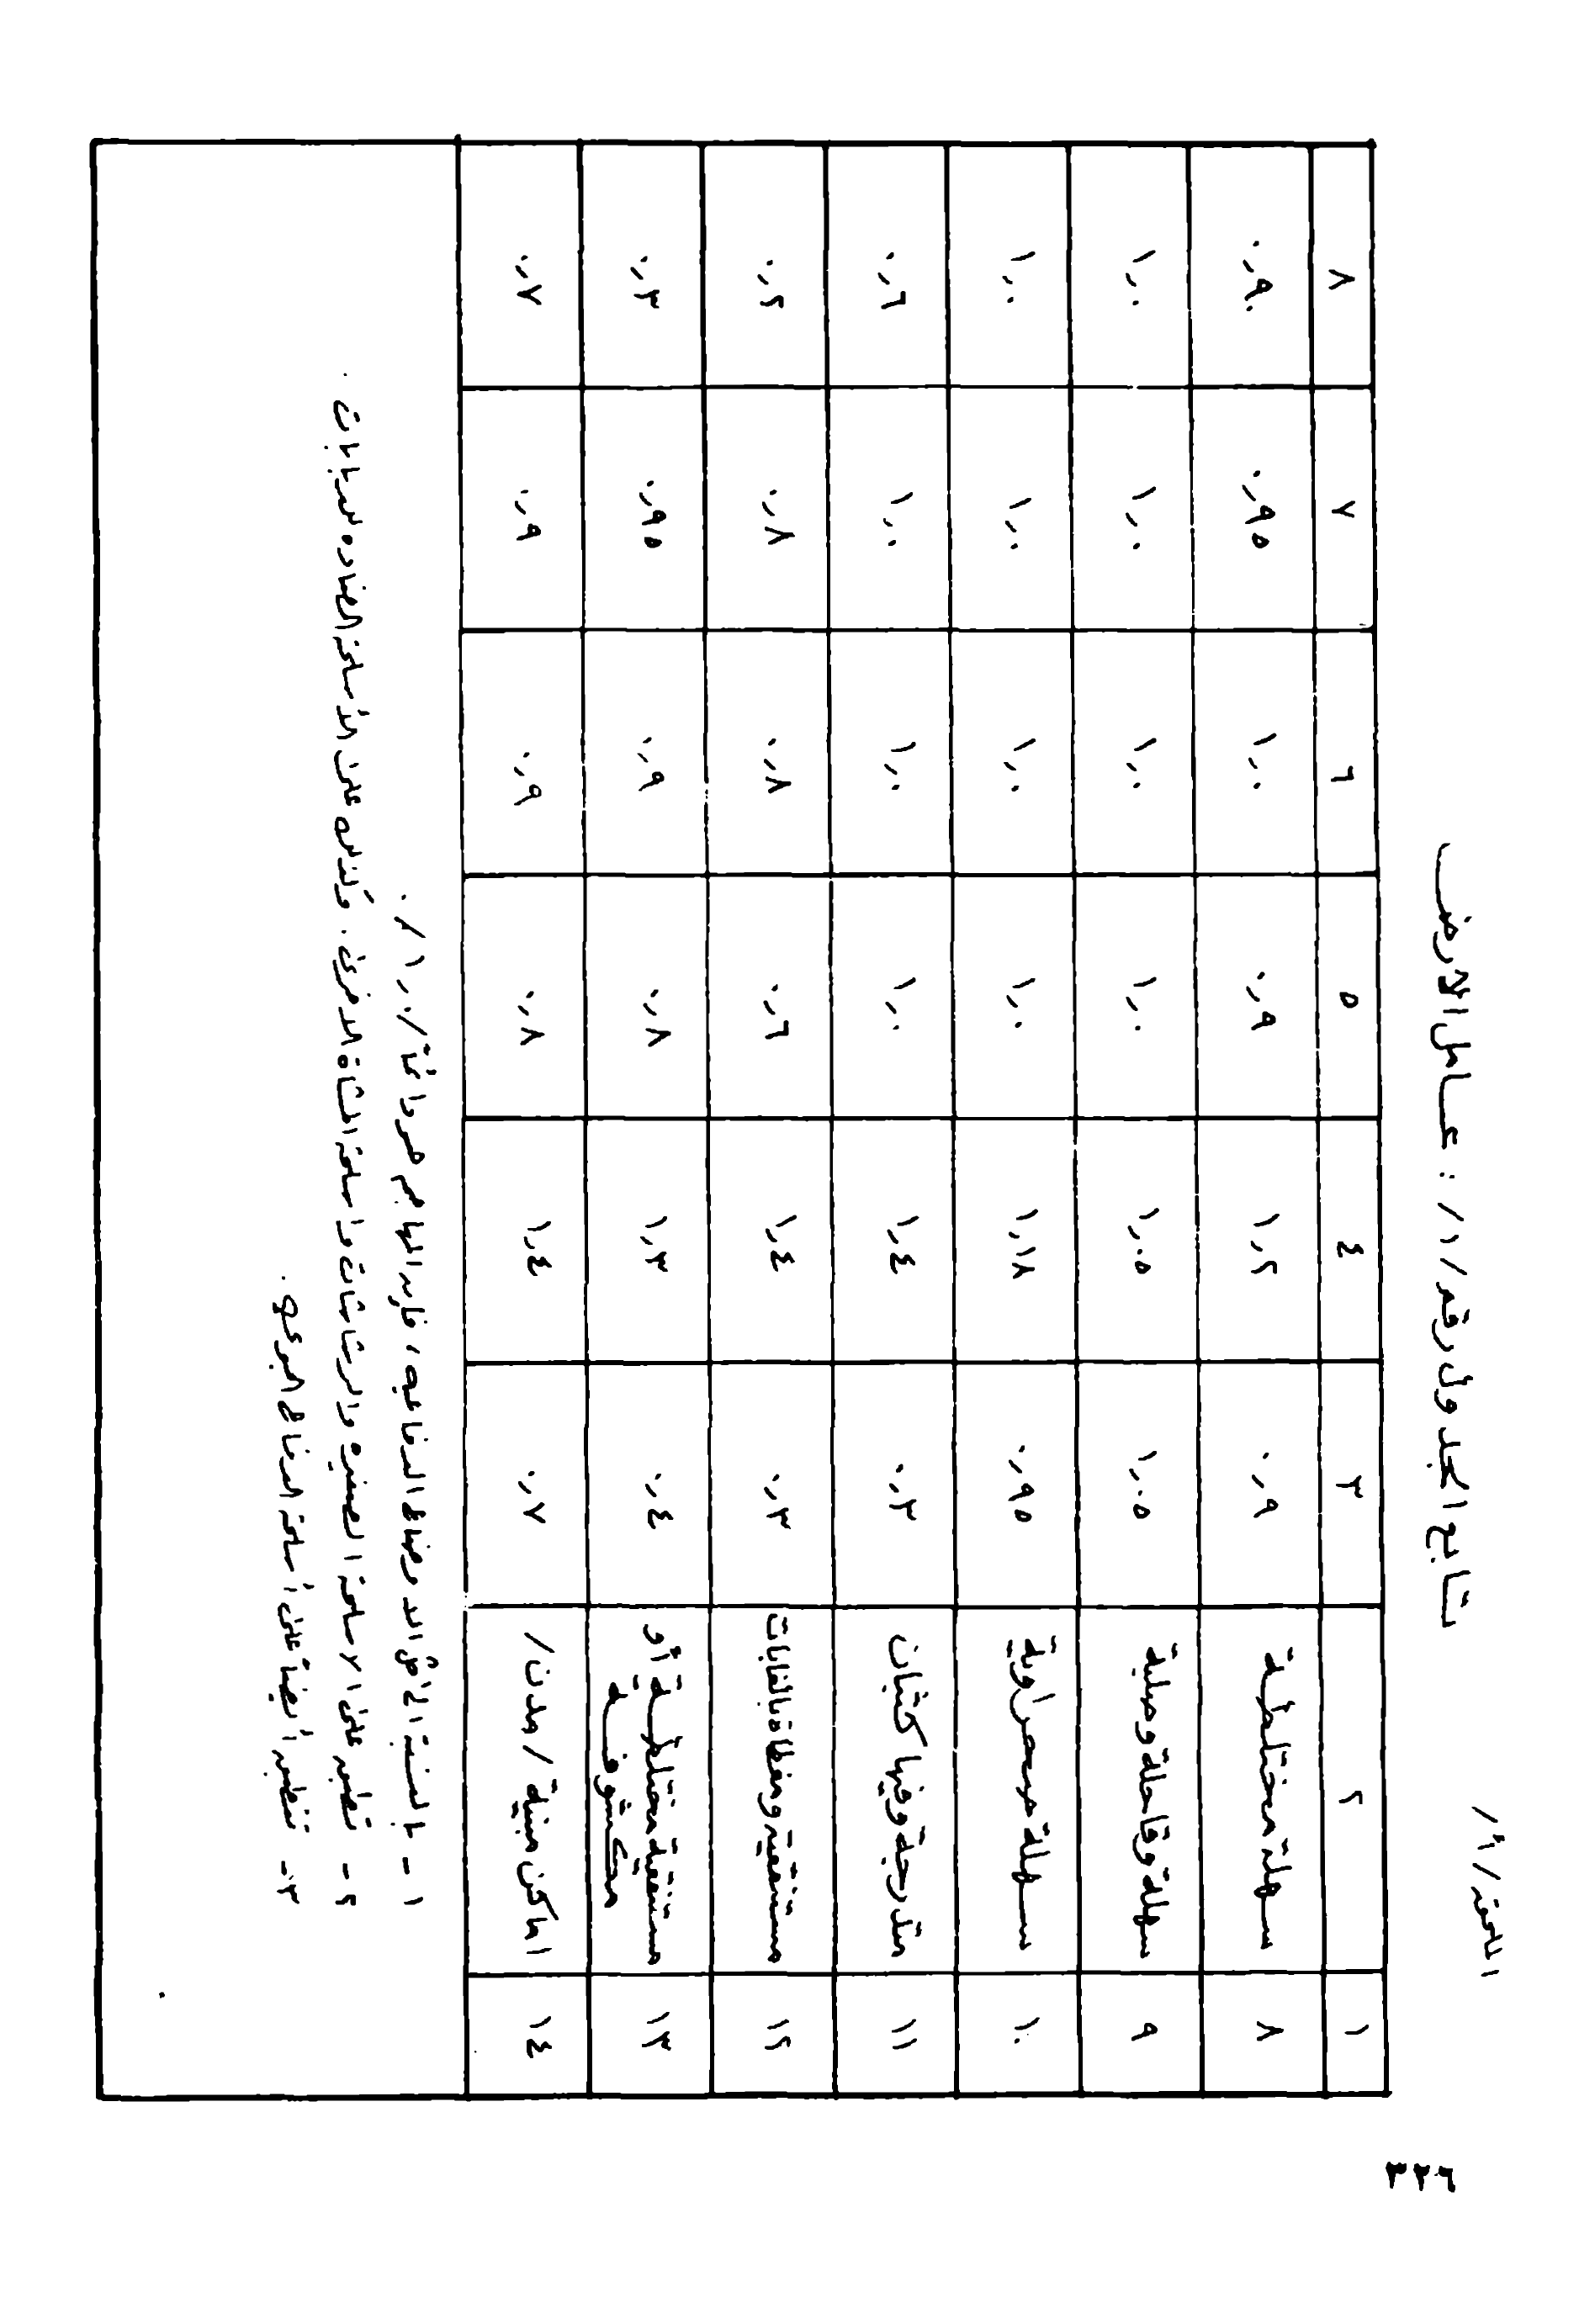 الملحق / أ /
تابع الجدول رقم / ١ / : عامل الأرض
١ ٢ ٣ ٤ ٥ ٦ ٧ ٨
٨ سهلة مختلطة ٠,٩ ١,٢ ٠,٩ ١,٠ ٠,٩٥ ٠,٩٠
٩ سهلة وقاحلة وصلبة ١,٠٥ ١,٠٥ ١,٠ ١,٠ ١,٠ ١,٠
١٠ سهلة صحراوية ٠,٩٥ ١,١٨ ١,٠ ١,٠ ١,٠ ١,٠
١١ متدرجة وفيها كثبان ٠,٣ ١,٤ ١,٠ ١,٠ ١,٠ ٠,٦
١٢ مستنقعية ومغطاة بالغابات ٠,٣ ١,٤ ٠,٦ ٠,٨ ٠,٨ ٠,٢
١٣ مستنقعية مختلطة أو
مكشوفة ٠,٤ ١,٣ ٠,٨ ٠,٩ ٠,٩٥ ٠,٣
١٤ اماكن مبنية / مدن / ٠,٧ ١,٤ ٠,٨ ٠,٩ ٠,٩ ٠,٧
١ - بالنسبة الأوضاع الدفاعيه ، فإن المهاجم هو دائماً / ١,٠ / .
٢ - تطبق على الاسلحة الصغيره والرشاشات واسلحة المشاة الاخرى . وكذلك على الأسلحة المضاده للدبابات .
٣ - تنطبق أيضاً على أسلحة الدفاع الجوي .
٣٢٦